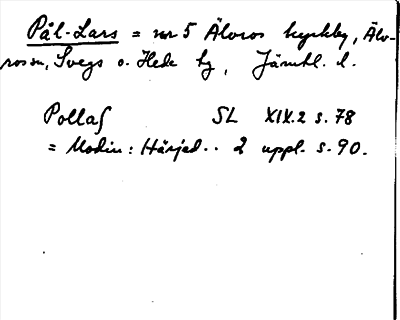 Pål-Lars = nr 5 Älvros kyrkby, Älv-
ros sn, Svegs o. Hede tg, Jämtl. l.
Pollas SL XIX.2 s. 78
= Modin: Härjed.. 2 uppl. s. 90.